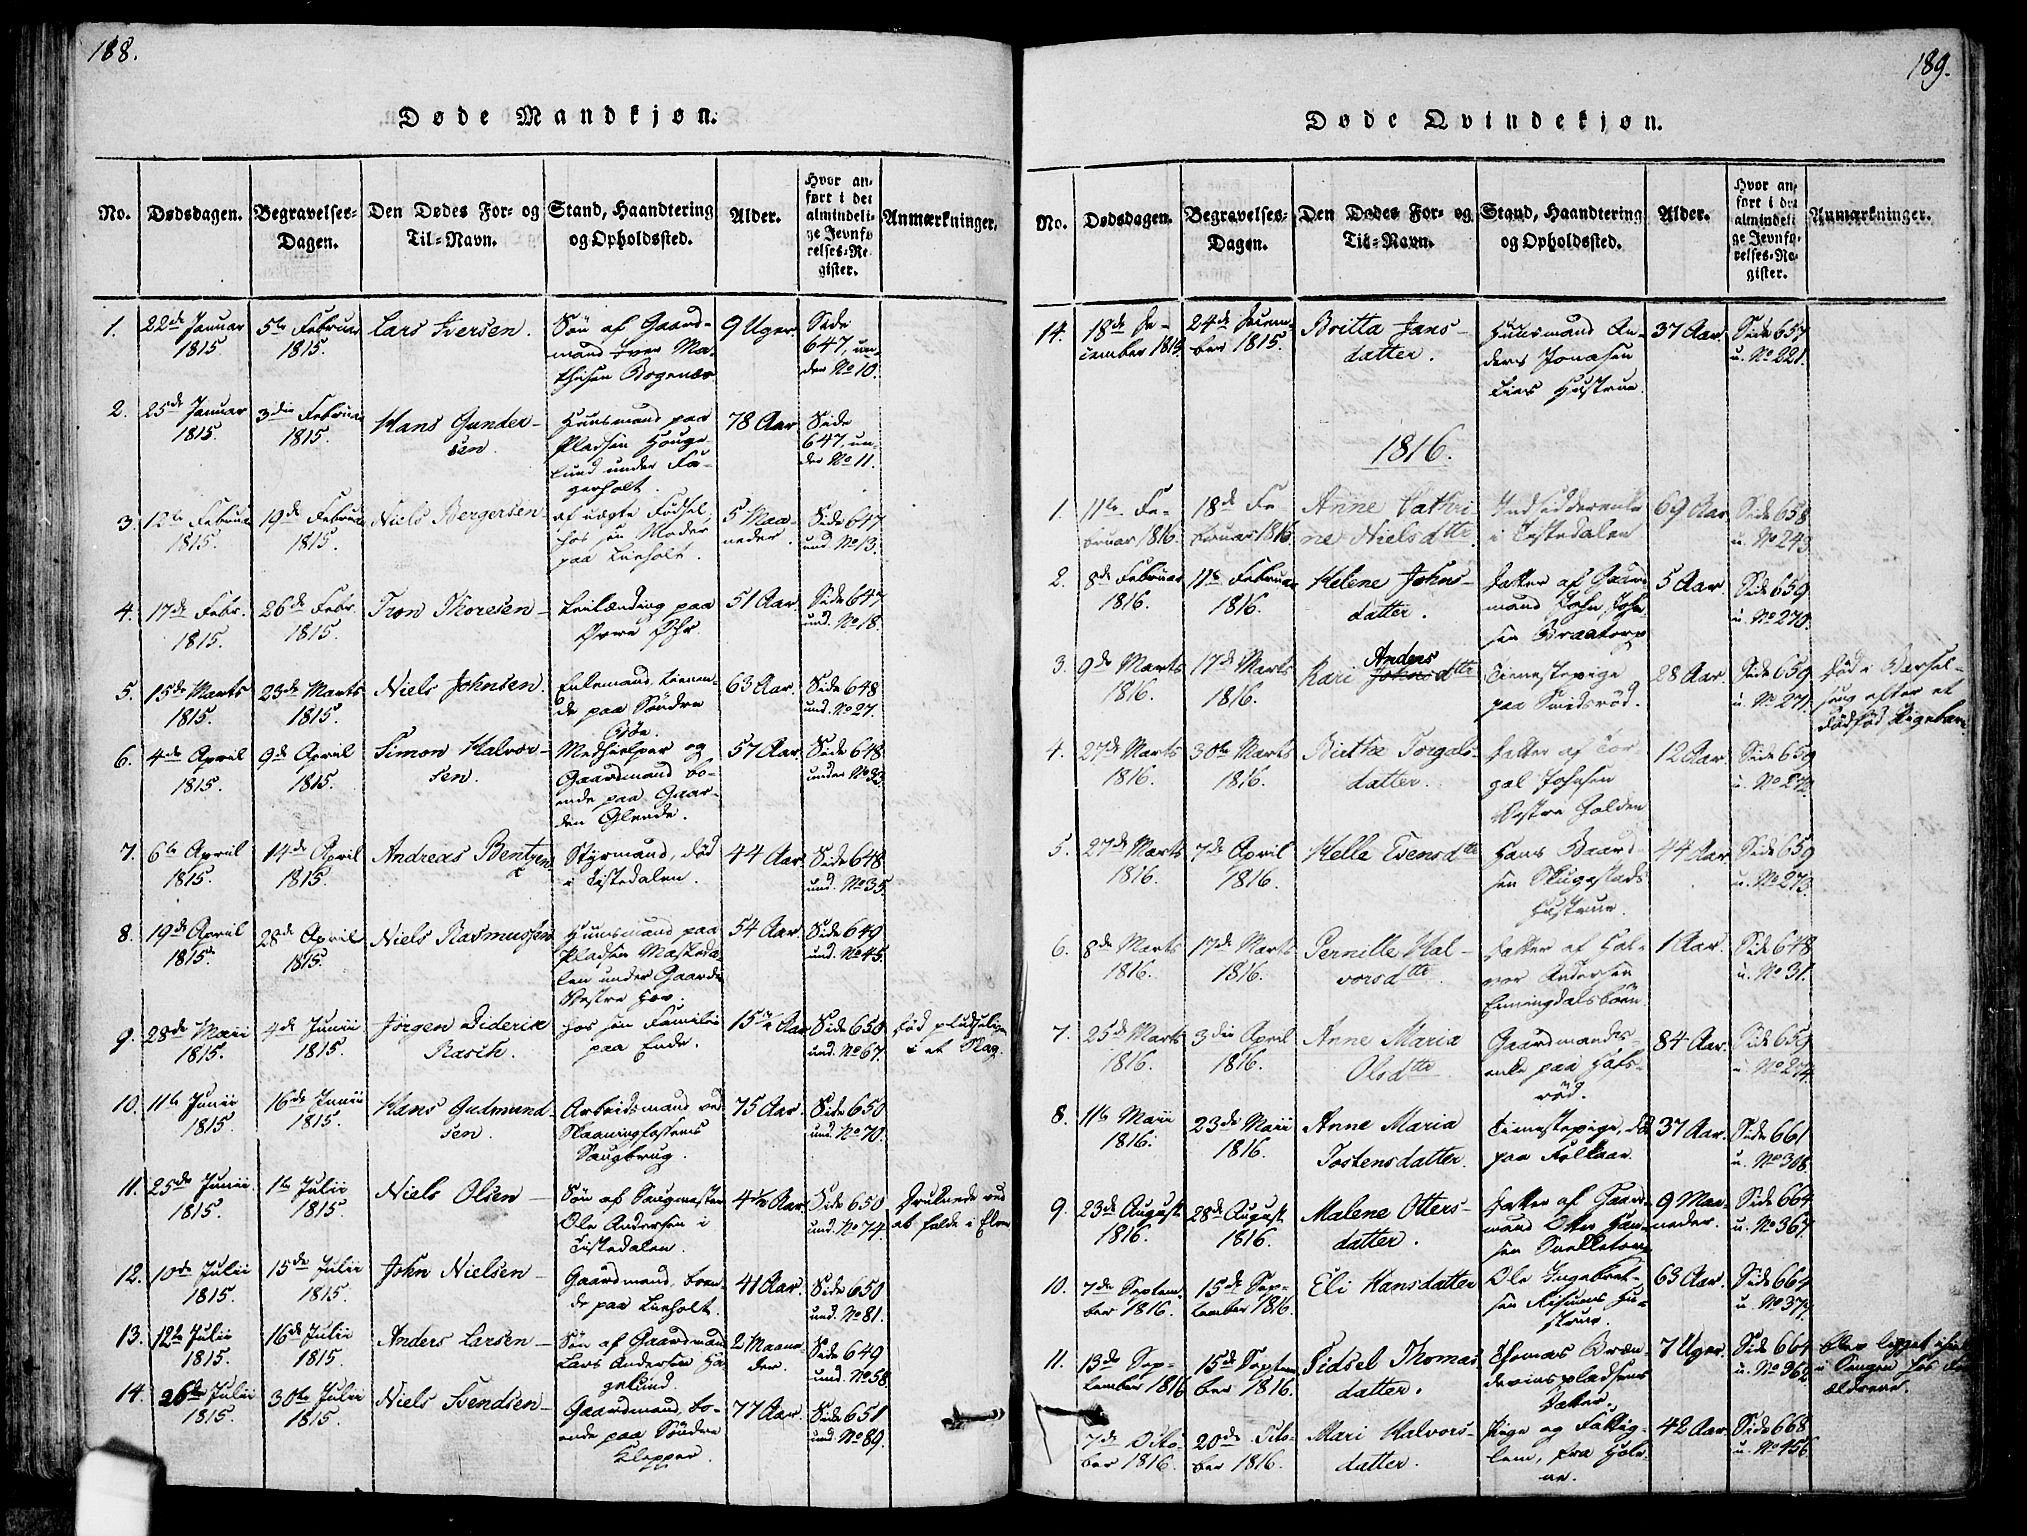 188.
Døde Mandkjøn.
No. Dødsdagen. Begravelses-Dagen. Den Dødes For- og Til-Navn. Stand, Haandtering og Opholdssted. Alder. Hvor anført i det almindelige Jevnførelses-Register. Anmærkninger.
1. 22de Januar 1815 5te Februar 1815. Lars Iversen. Søn af Gaardmand Iver Mathisen 9 Uger. Side 647, under No 10.
2. 25de Januar 1815. 3die Februar 1815. Hans Gundersen. Huusmand paa Pladsen Hougelund under Fagerholt. 78 Aar Side 647, under No 11.
3. 12te Februar 1815. 19de Februar 1815. Niels Bergersen af uægte Fødsel, hos sin Moder paa Lieholt. 5 Maaneder. Side 647 und. No 13.
4. 17de Febr. 1815. 26de Febr. 1815. Tron Thoresen Leilænding paa Øvre 51 Aar. Side 647 und. No 18.
5. 15de Marts 1815. 23de Marts 1815. Niels Johnsen. Enkemand, boende paa Søndre Bøe. 63 Aar. Side 648 und. No 27.
6. 4de April 1815. 9de April 1815. Simon Halvorsen. Medhielper og Gaardmand boende paa Gaarden Glende. 57 Aar. Side 648 under No 32.
7. 6te April 1815. 14de April 1815. Andreas Bentzen Styrmand, død i Tistedalen. 44 Aar. Side 648 und. No 35.
8. 19de April 1815. 28de April 1815. Niels Rasmussen Huusmand paa Pladsen Maskedalen under Gaarden Vestre Hov. 54 Aar. Side 649 und. No 45.
9. 28de Maii 1815. 4de Junii 1815. Jørgen Diderik Rasch. hos sin Familie paa Ende. 15 Aar Side 650 und. No 67. død pludselig i et Slag.
10. 11te Junii 1815. 16de Junii 1815. Hans Gudmundsen. Arbeidsmand ved Skaaningfossens Saugbrug. 75 Aar. Side 650 und. No 70.
11. 25de Junii 1815. 1te Julii 1815. Niels Olsen Søn af Saugmester Ole Andersen i Tistedalen. 4½ Aar. Side 650 und. No 74. Druknede ved at falde i Elven
12. 10de Julii 1815. 15de Julii 1815. John Nielsen Gaardmand, boende paa Lieholt. 41 Aar. Side 650 und. No 81.
13. 12te Julii 1815. 16de Julii 1815. Anders Larsen Søn af Gaardmand Lars Andersen Hagelund. 2 Maaneder. Side 649 und. No 58.
14. 26de Julii 1815. 30te Julii 1815. Niels Svendsen Gaardmand, boende paa Søndre Klepper. 77 Aar. Side 651 und. No 89.
189.
Døde Qvindekjøn.
No. Dødsdagen. Begravelses-Dagen. Den Dødes For- og Til-Navn. Stand, Haandtering og Opholdssted. Alder. Hvor anført i det almindelige Jevnførelses-Register. Anmærkninger.
14. 18de December 1815. 24de December 1815. Britta Jansdatter. Huusmand Anders Jonasen Hustrue. 37 Aar. Side 657 u. No 221.
1816.
1. 11te Februar 1816. 18de Februar 1816. Anne Cathrine Nielsdttr. Indsidderenke i Tistedalen 69 Aar Side 658 u. No 243.
2. 8de Februar 1816. 11te Februar 1816. Helene Johnsdatter. Datter af Gaardmand John Johnsen Braatorp 5 Aar. Side 659 u. No 270.
3. 9de Marts 1816. 17de Marts 1816. Kari Anders Johnsdttr Tienestepige paa 28 Aar. Side 659 u. No 271. død i Barselseng efter et dødfød Pigebarn
4. 27de Marts 1816. 30te Marts 1816. Birthe Torgalsdatter. Datter af Torgal Johnsen Vestre Holden 12 Aar. Side 659 u. No 272.
5. 27de Marts 1816. 7de April 1816. Helle Evensdttr Hans Baardsen Hustrue. 44 Aar Side 659 u. No 273.
6. 8de Marts 1816. 17de Marts 1816. Pernille Halvorsdttr. Datter af Halvor Andersen 1 Aar. Side 648 u. No 31.
7. 25de Marts 1816. 3die April 1816. Anne Maria Olsdttr Gaardmandsenke paa 84 Aar. Side 659 u. No 274.
8. 11te Maii 1816. 23de Maii 1816. Anne Maria Tostensdatter. Tienestepige, død paa 37 Aar. Side 661 u. No 308.
9. 23de August 1816. 28de August 1816. Malene Ottersdatter. Datter af Gaardmand Otter Hansen 9 Maaneder. Side 664 u. No 367.
10. 7de September 1816. 15de September 1816. Eli Hansdatter Ole Ingebretsen Risums Hustrue. 63 Aar. Side 664 u. No 377.
11. 13de September 1816 15de September 1816. Sidsel Thomasdatter. Thomas Brændeviinspladsens Datter. 7 Uger. Side 664 u. No 368. blev ligget ihiel i Sengen hos Forældrene.
7de October 1816. 20de October 1816. Mari Halvorsdatter. Pige og Fattiglem, fra 42 Aar. Side 668 u. No 456.